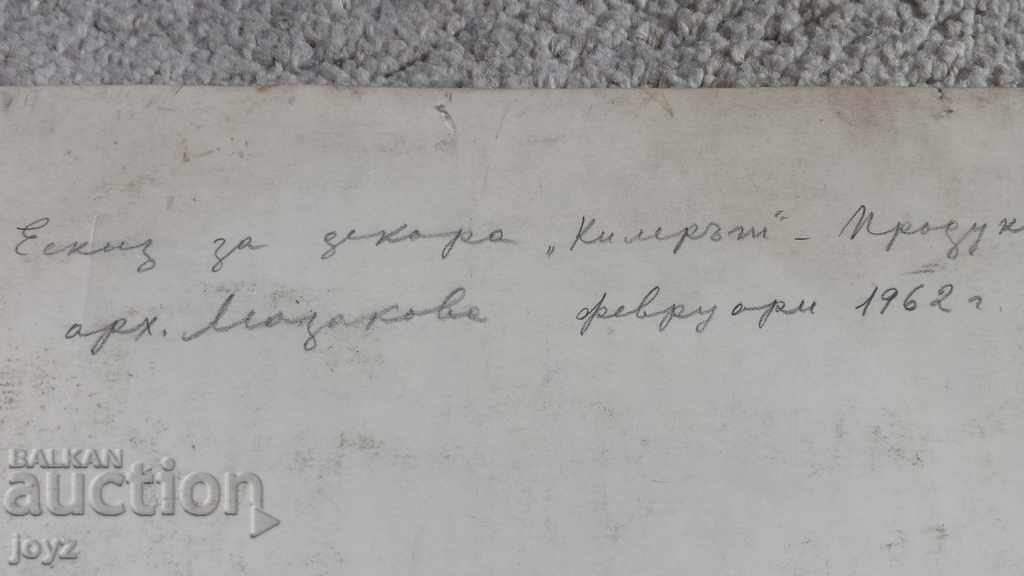 Ескиз за декора „Килерът“ – Продук
арх. Мозакова февруари 1962 г.
BALKAN
auction
joyz